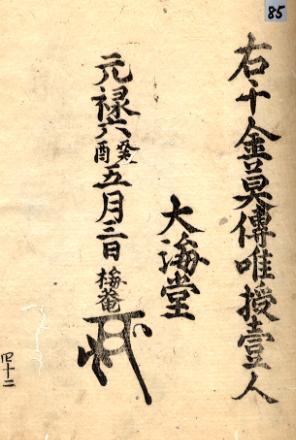 85
右千金莫傳唯授壹人
大海堂
元禄六癸酉五月三日 梅菴
四十二